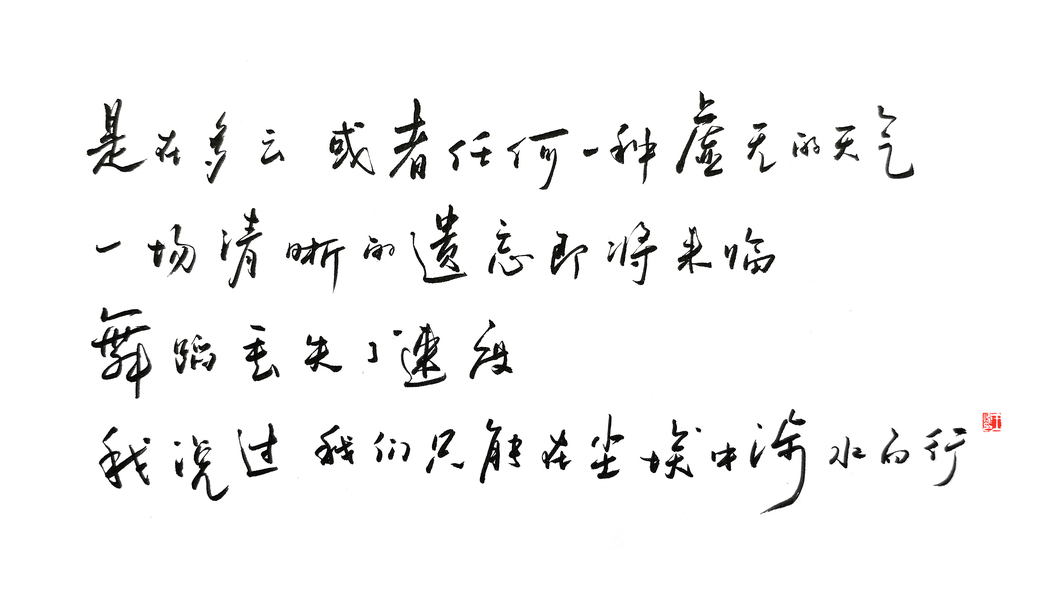 是在多云 或者任何一种虚无的天气
一场清晰的遗忘即将来临
舞蹈丢失了速度
我说过 我们只能在尘埃中涉水而行